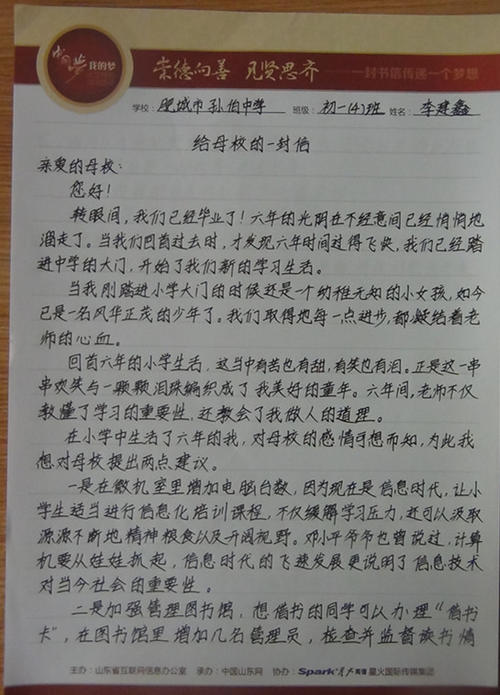 中国梦 我的梦
崇德向善 见贤思齐 一封书信传递一个梦想
学校：肥城市孙伯中学 班级：初一(4)班 姓名：李建鑫
给母校的一封信
亲爱的母校：
您好！
转眼间，我们已经毕业了！六年的光阴在不经意间已经悄悄地
溜走了。当我们回首过去时，才发现六年时间过得飞快，我们已经踏
进中学的大门，开始了我们新的学习生活。
当我刚踏进小学大门的时候还是一个幼稚无知的小女孩，如今
已是一名风华正茂的少年了。我们取得的每一点进步，都凝结着老
师的心血。
回首六年的小学生活，这当中有苦也有甜，有笑也有泪。正是这一串
串欢笑与一颗颗泪珠编织成了我美好的童年。六年间，老师不仅
教懂了学习的重要性，还教会了我做人的道理。
在小学中生活了六年的我，对母校的感情可想而知，为此我
想对母校提出两点建议。
一是在微机室里增加电脑台数，因为现在是信息时代，让小
学生适当进行信息化培训课程，不仅缓解学习压力，还可以汲取
源源不断地精神粮食以及开阔视野。邓小平爷爷也曾说过，计算
机要从娃娃抓起，信息时代的飞速发展更说明了信息技术
对当今社会的重要性。
二是加强管理图书馆，想借书的同学可以办理“借书
卡”，在图书馆里增加几名管理员，检查并监督读书情
主办：山东省互联网信息办公室 承办：中国山东网 协办：Spark 星火英语 星火国际传媒集团